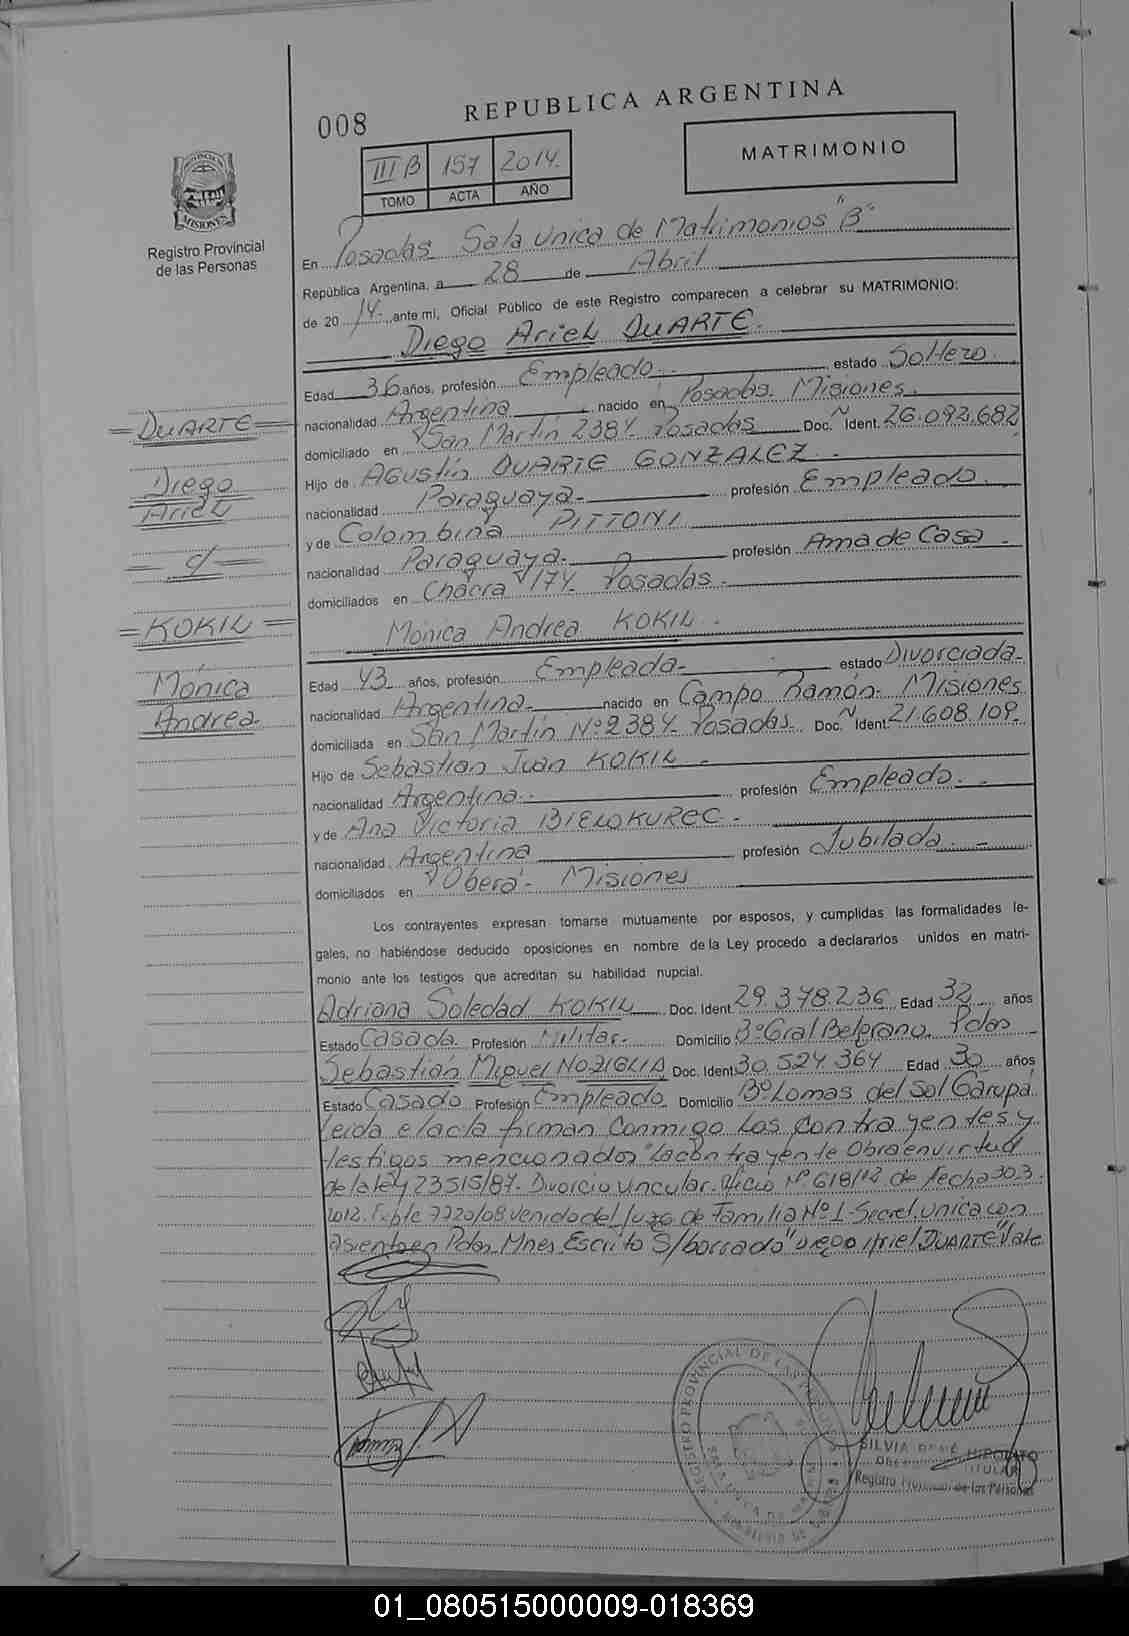 008
REPUBLICA ARGENTINA
MATRIMONIO
III B 157 2014.
TOMO ACTA AÑO
PROVINCIA
MISIONES
Registro Provincial
de las Personas
En Posadas Sala Unica de Matrimonios "B"
República Argentina, a 28 de Abril
de 20 14. ,ante mí, Oficial Público de este Registro comparecen a celebrar su MATRIMONIO:
Diego Ariel DUARTE.
Edad 36 años, profesión Empleado. estado Soltero.
nacionalidad Argentina nacido en Posadas. Misiones.
domiciliado en San Martín 2384. Posadas Doc. Ident. 26.092.682
Hijo de Agustín DUARTE GONZALEZ.
nacionalidad Paraguaya. profesión Empleado.
y de Colombina PITTONI
nacionalidad Paraguaya. profesión Ama de Casa.
domiciliados en Chacra 174. Posadas.
Mónica Andrea KOKIL.
Edad 43 años, profesión Empleada. estado Divorciada.
nacionalidad Argentina. nacido en Campo Ramón. Misiones
domiciliada en San Martin Nº 2384. Posadas. Doc. Ident. 21.608.109.
Hijo de Sebastian Juan KOKIL.
nacionalidad Argentina. profesión Empleado.
y de Ana Victoria BIELOKUREC.
nacionalidad Argentina profesión Jubilada.
domiciliados en Oberá - Misiones
Los contrayentes expresan tomarse mutuamente por esposos, y cumplidas las formalidades le-
gales, no habiéndose deducido oposiciones en nombre de la Ley procedo a declararlos unidos en matri-
monio ante los testigos que acreditan su habilidad nupcial.
Adriana Soledad KOKIL Doc. Ident. 29.378.236 Edad 32 años
Estado Casada. Profesión Militar. Domicilio Bº Gral Belgrano. Pdas
Sebastián Miguel NOZIGLIA Doc. Ident. 30.524.364 Edad 30 años
Estado Casado Profesión Empleado. Domicilio Bº Lomas del Sol Garupá
Leida el acta firman conmigo los contrayentes y
testigos mencionados La contrayente Obra en virtud
de la ley 23515/87. Divorcio Vincular. Oficio Nº 618/12 de fecha 30.3.
2012. Expte 7720/08 venido del Juzg. de Familia Nº 1- Secret. Unica con
asiento en Pdas. Mnes. Escrito S/borrado "Diego Ariel DUARTE" Vale
=DUARTE=
Diego
Ariel
= c/ =
=KOKIL=
Mónica
Andrea.
REGISTRO PROVINCIAL DE LAS PERSONAS
SILVIA HIPOLITO
TITULAR
Registro Provincial de las Personas
01_080515000009-018369